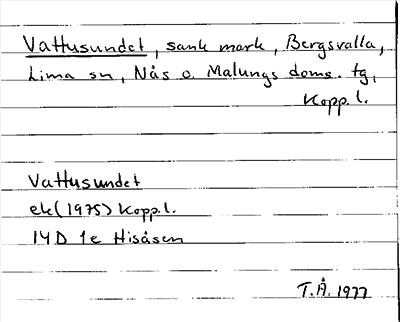 Vattusundet, sank mark, Bergsvalla,
Lima sn, Nås o. Malungs doms. tg,
Kopp. l.
Vattusundet
ek (1975) Kopp. l.
14 D 1e Hisåsen
T.Å. 1977